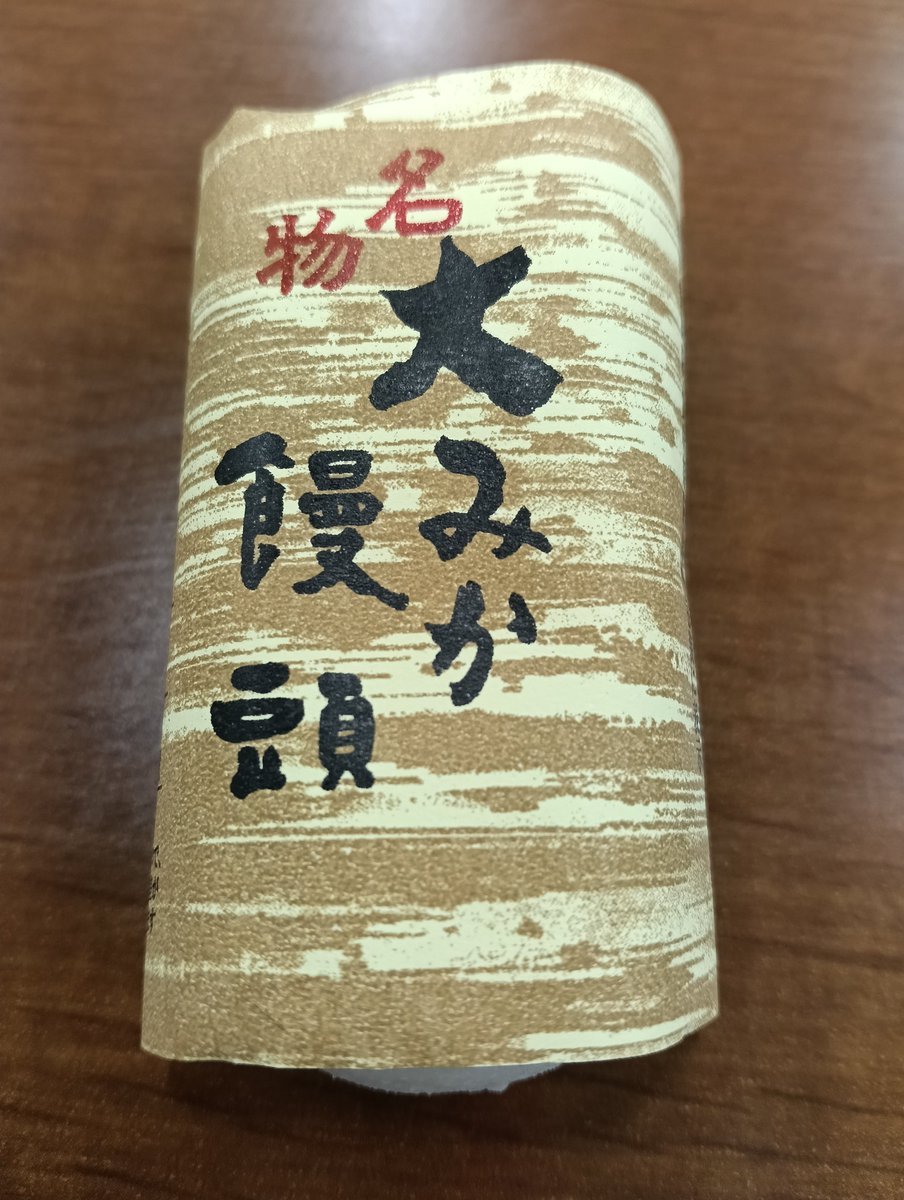 名物
大みか
饅頭